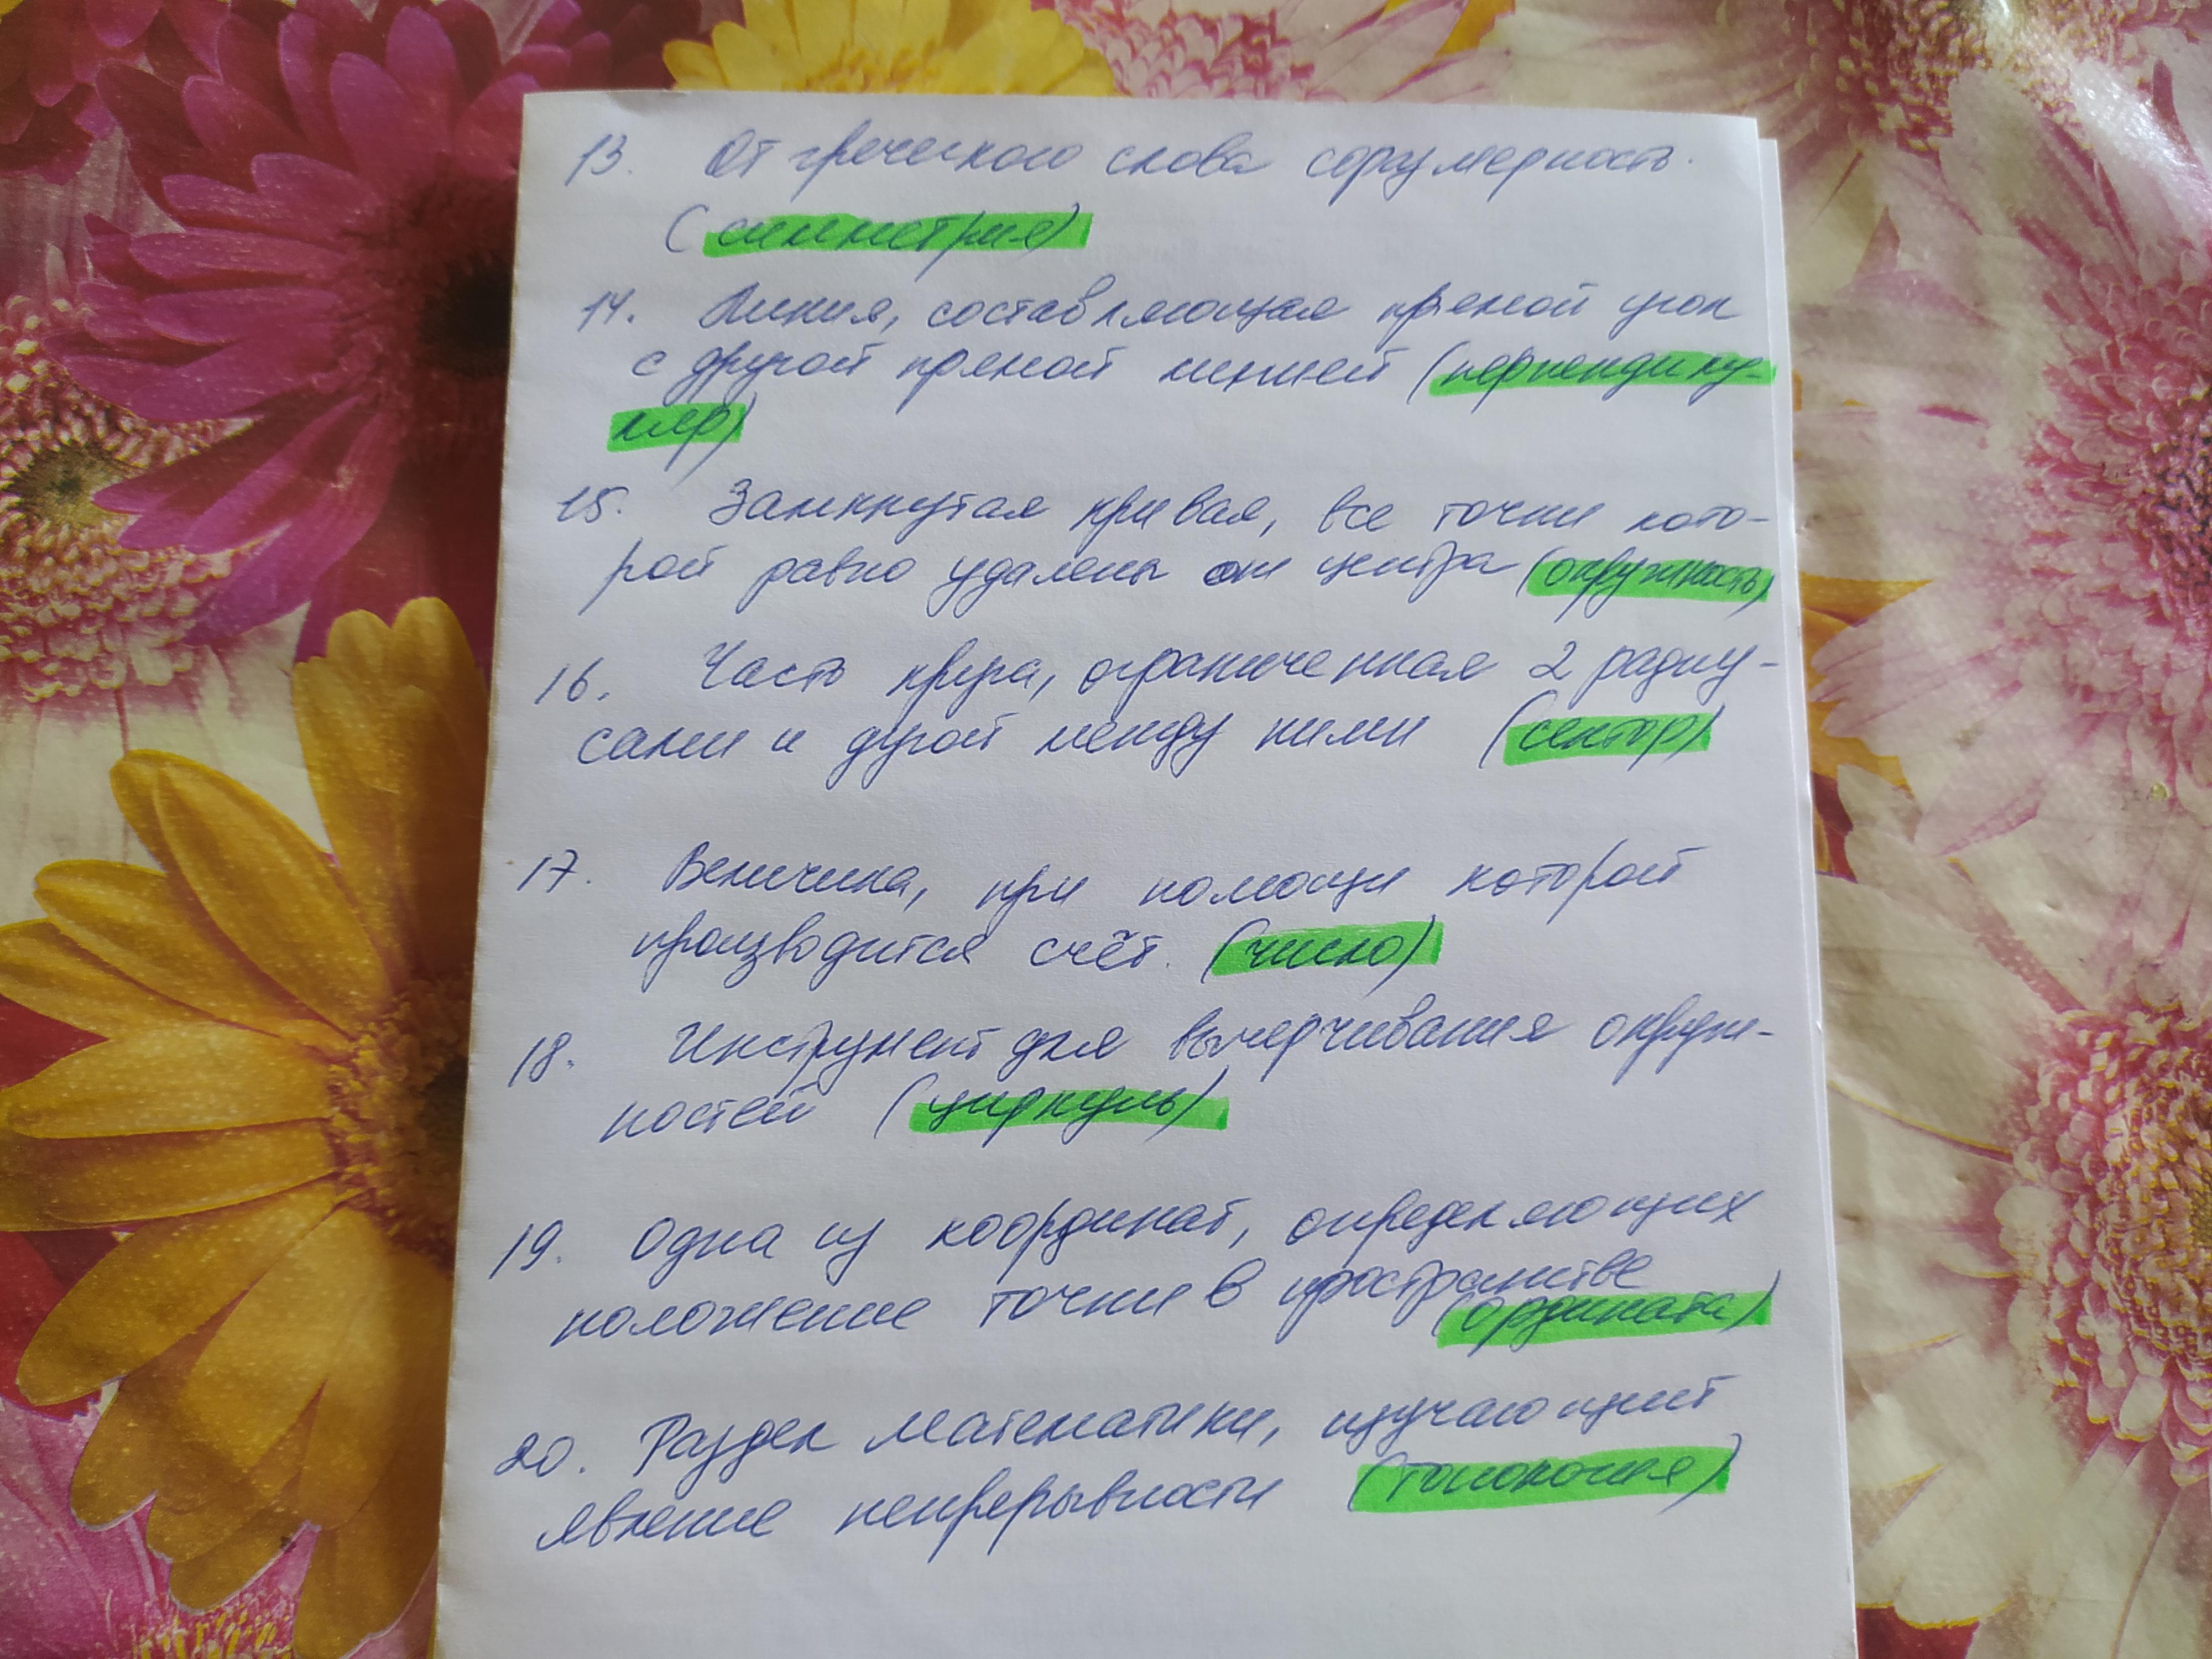 13. От греческого слова соразмерность.
(симметрия)
14. Линия, составляющая прямой угол
с другой прямой линией (перпендику-
ляр)
15. Замкнутая кривая, все точки кото-
рой равно удалены от центра (окружность)
16. Часть круга, ограниченная 2 радиу-
сами и дугой между ними (сектор)
17. Величина, при помощи которой
производится счёт. (число)
18. Инструмент для вычерчивания окруж-
ностей (циркуль)
19. Одна из координат, определяющих
положение точки в пространстве
(ордината)
20. Раздел математики, изучающий
явление непрерывности (топология)